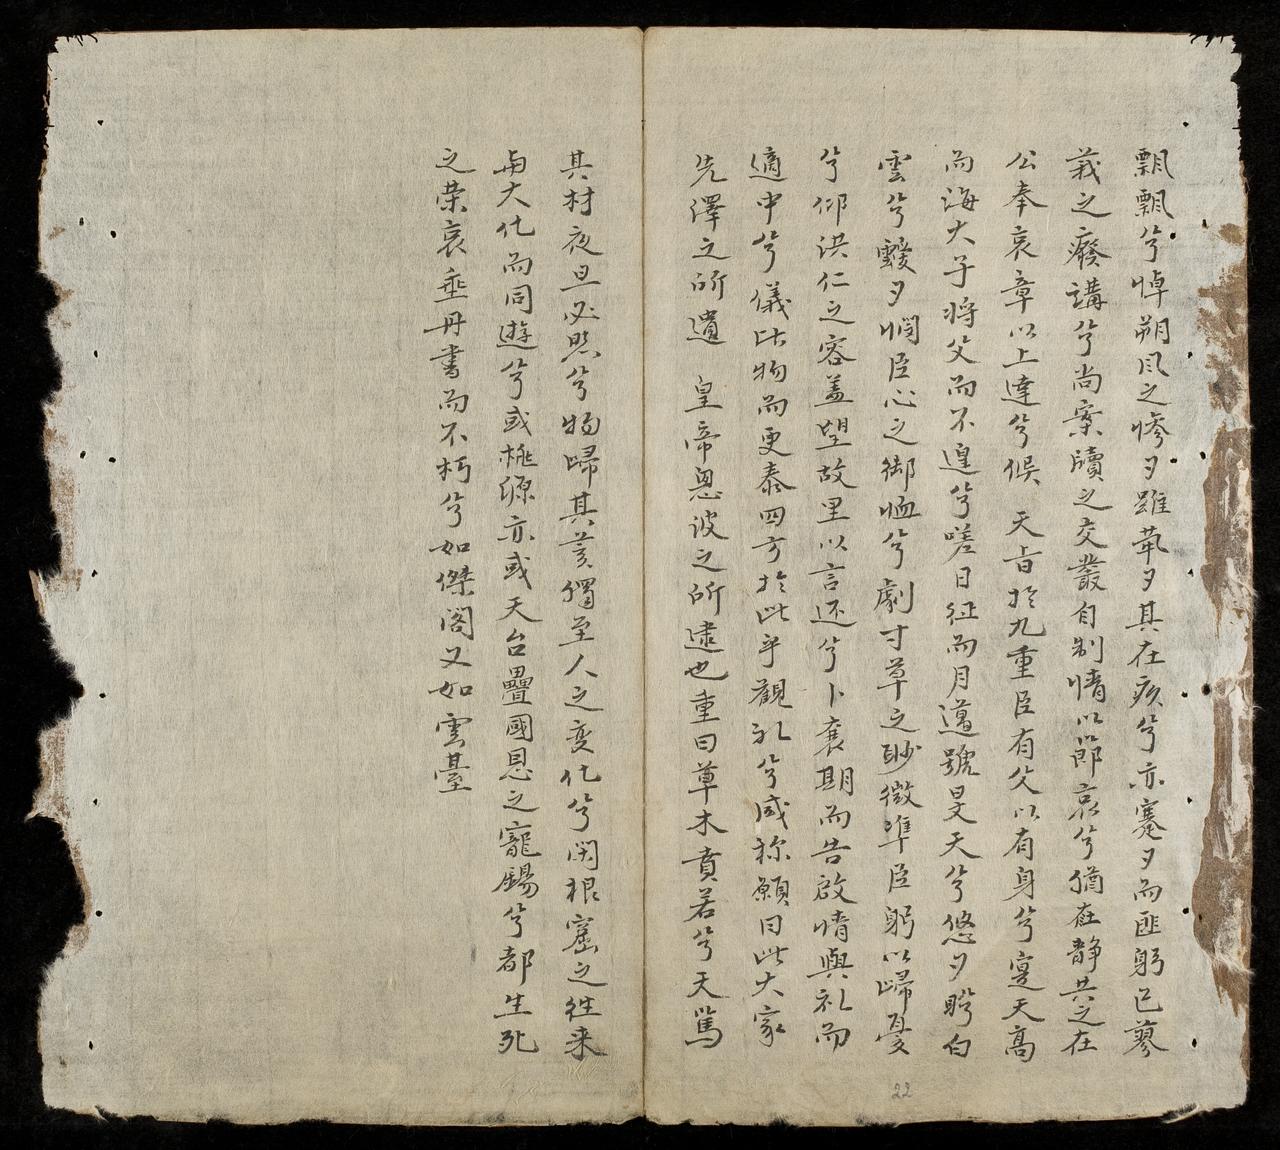 飄飄兮悼朔风之慘夕雖㷀夕其在疚兮亦寋夕而匪躬已蓼
莪之癈講兮尚案牘之交叢自制情以節哀兮猶在靜共之在
公奉哀章以上達兮候 天旨於九重臣有父以有身兮寔天高
而海大子將父而不遑兮嗟日征而月邁號旻天兮悠夕盻白
雲兮靉夕憫臣心之御恤兮劇寸草之眇微準臣躬以歸憂
兮仰洪仁之容盖望故里以言还兮卜襄期而告啟情與礼而
適中兮儀比物而更泰四方於此乎觀礼兮咸称願曰此大家
先澤之所遺 皇帝恩波之所逮也重曰草木賁若兮天篤
其材夜旦必然兮物歸其荄獨至人之变化兮闭根窟之徃来
与大化而同遊兮或桃源亦或天台疊國恩之寵錫兮都生死
之荣哀垂丹書而不朽兮如傑阁又如雲臺
22